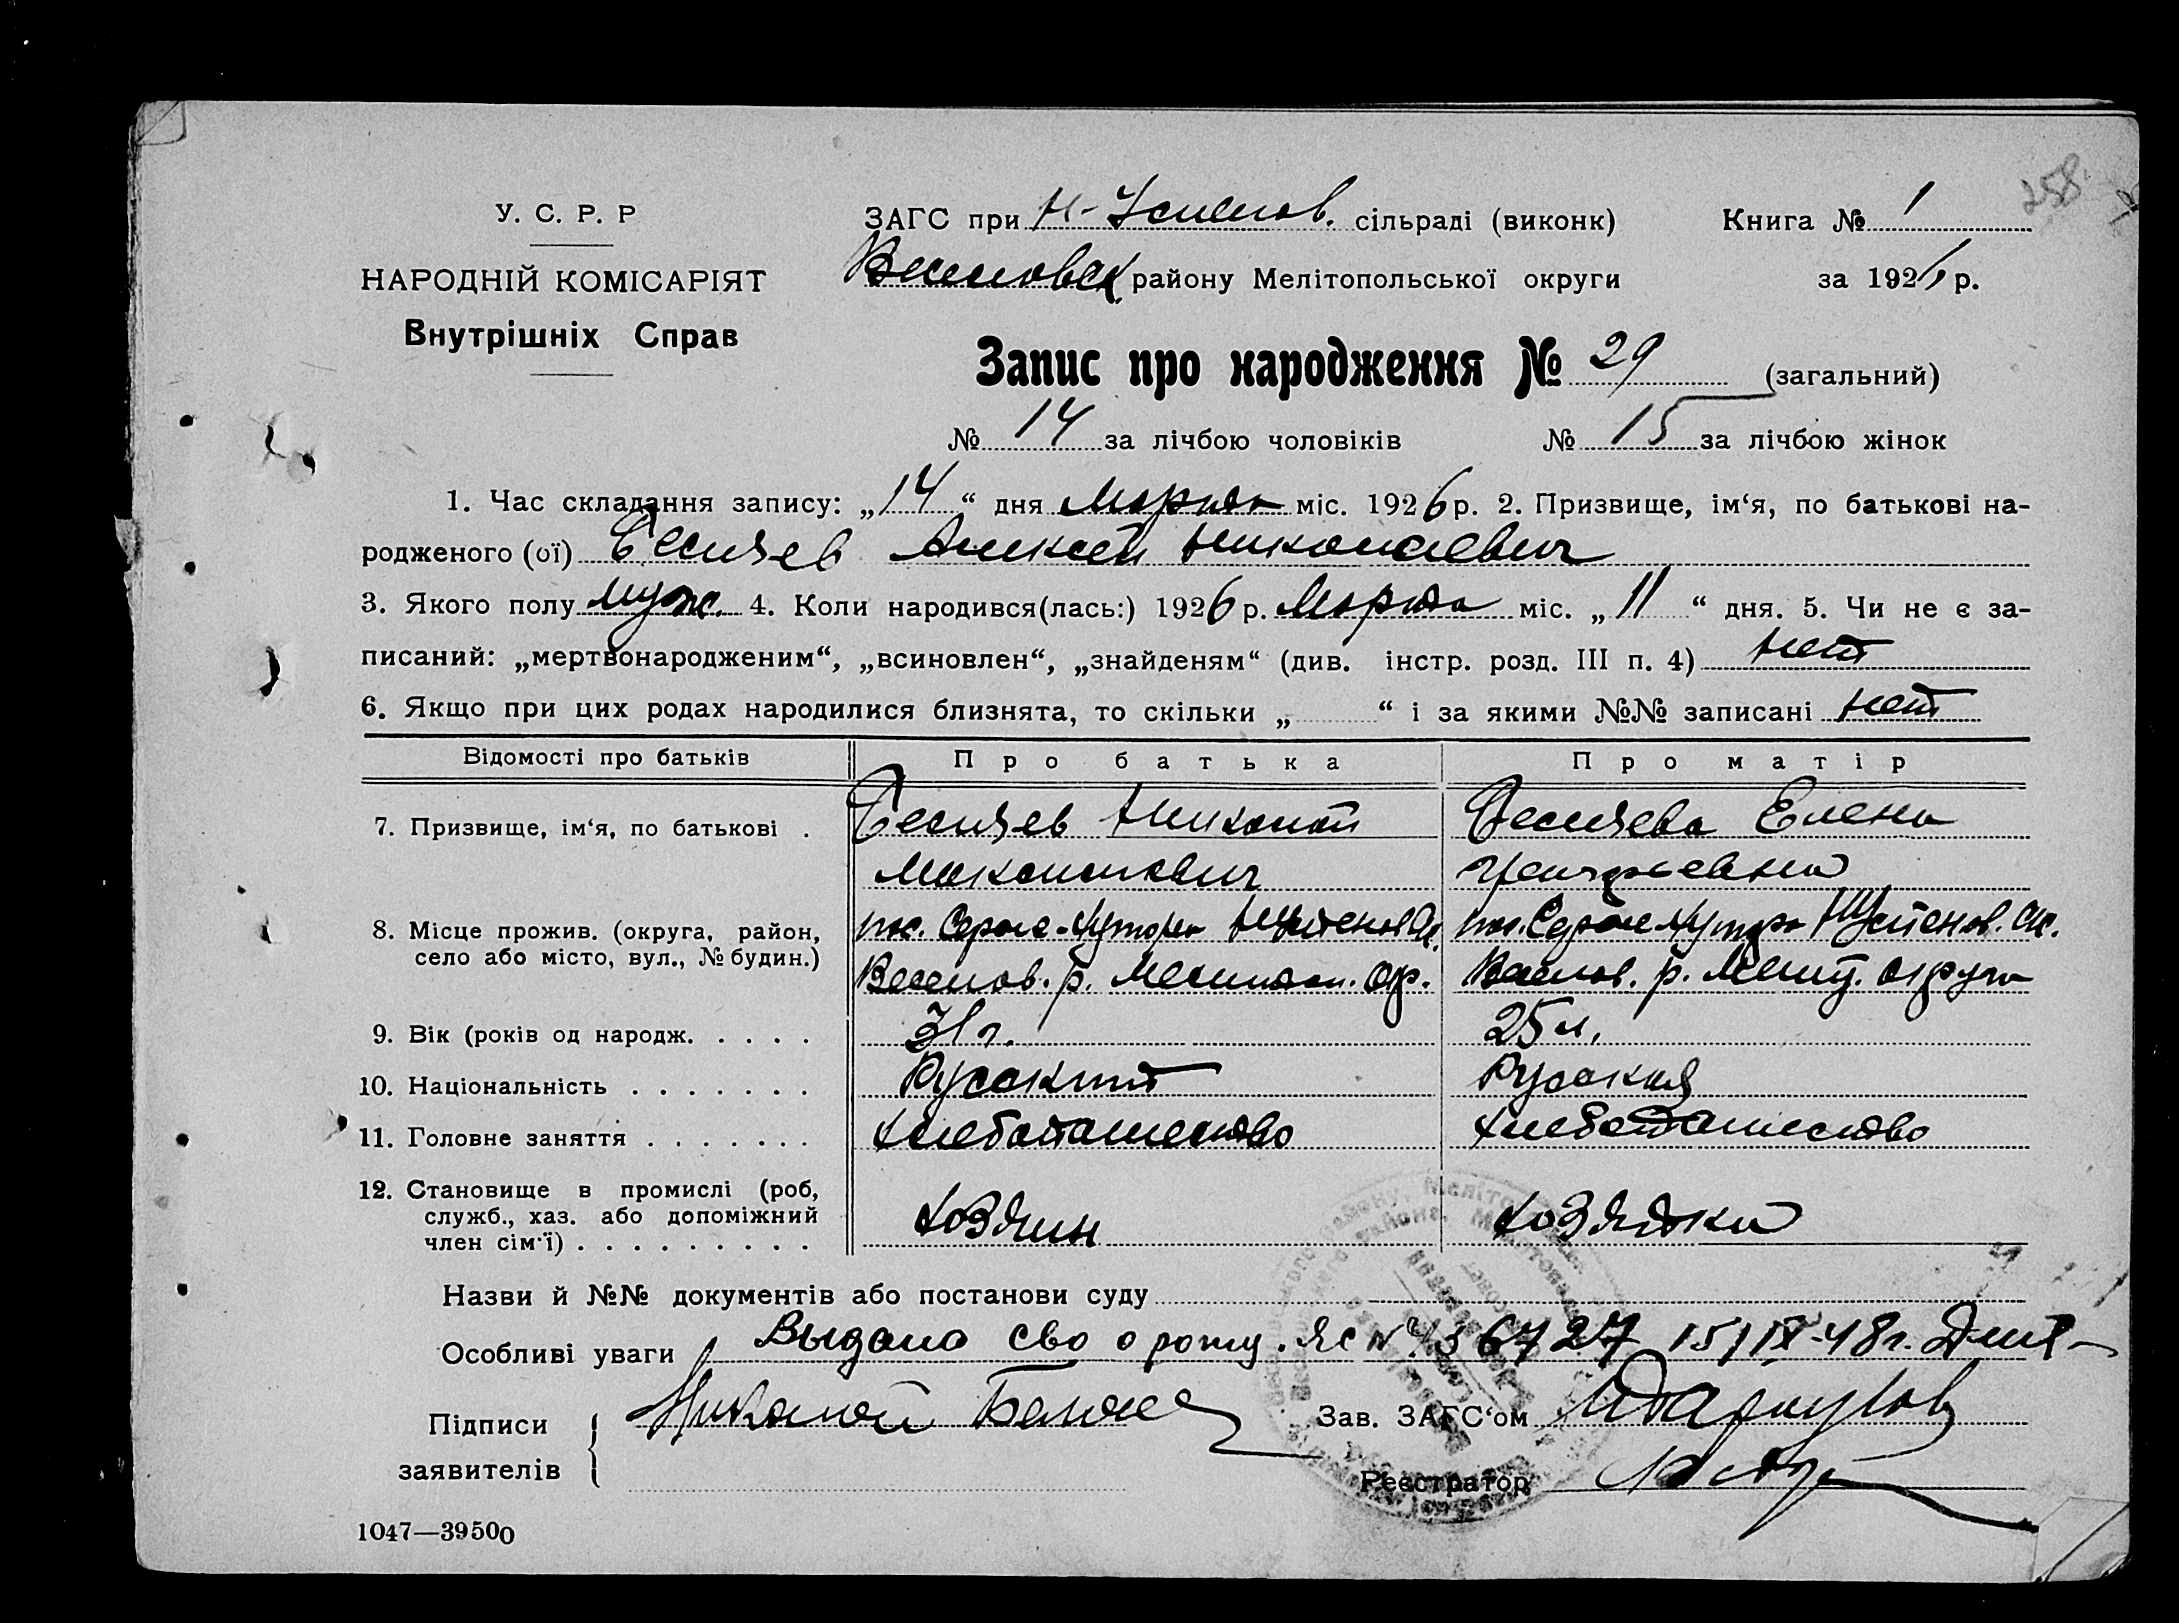 258
У. С. Р. Р
НАРОДНІЙ КОМІСАРІЯТ
Внутрішніх Справ
ЗАГС при Н-Успенов. сільраді (виконк)
Книга № 1
Веселовск району Мелітопольської округи
за 1926 р.
Запис про народження № 29 (загальний)
№ 14 за лічбою чоловіків № 15 за лічбою жінок
1. Час складання запису: „14“ дня Марта міс. 1926 р. 2. Призвище, ім‘я, по батькові на-
родженого (ої) Алексей Николаевич
3. Якого полу муж. 4. Коли народився(лась:) 1926 р. Марта міс. „11“ дня. 5. Чи не є за-
писаний: „мертвонародженим“, „всиновлен“, „знайденям“ (див. інстр. розд. III п. 4) нет
6. Якщо при цих родах народилися близнята, то скільки „ “ і за якими №№ записані нет
Відомості про батьків
Про батька
Про матір
7. Призвище, ім‘я, по батькові .
Николай
Елена
Максимович
8. Місце прожив. (округа, район,
село або місто, вул., № будин.)
Веселов. р. Мелитоп. окр.
Веселов. р. Мелит. округа
9. Вік (років од народж. . . . .
31 г.
25 л.
10. Національність . . . . . . .
Русский
Русская
11. Головне заняття . . . . . . .
хлебопашество
хлебопашество
12. Становище в промислі (роб,
служб., хаз. або допоміжний
член сім‘ї) . . . . . . . . .
хозяин
хозяйка
Назви й №№ документів або постанови суду
Особливі уваги Выдано сво о рожд. ЯС № 436727 15/IX-48г.
Підписи
заявителів
Николай
Зав. ЗАГС‘ом
Реєстратор
1047—39500